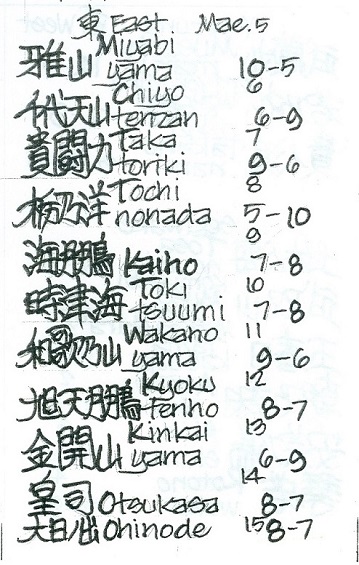 東 East. Mae. 5
雅山 Miyabi
yama 10-5
千代天山 Chiyo 6
tenzan 6-9
貴闘力 Taka 7
toriki 9-6
栃乃洋 Tochi 8
nonada 5-10
9
海鵬 Kaiho 7-8
時津海 Toki 10
tsuumi 7-8
和歌乃山 Wakano 11
yama 9-6
旭天鵬 Kyoku 12
tenho 8-7
金開山 Kinkai 13
yama 6-9
14
皇司 Otsukasa 8-7
大日ノ出 Ohinode 15 8-7